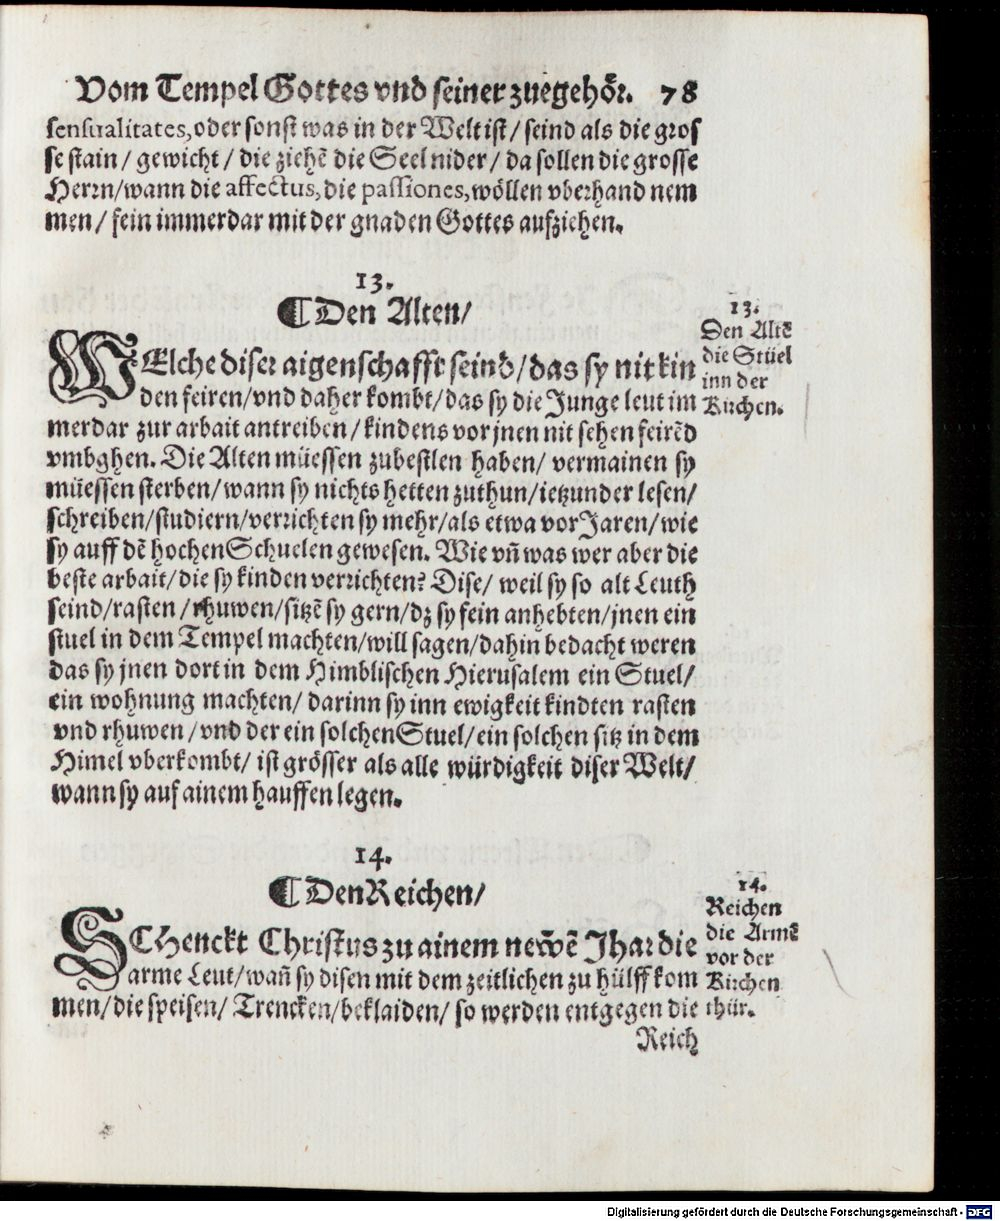 Vom Tempel Gottes vnd seiner zuegehör. 78
sensualitates, oder sonst was in der Welt ist / seind als die gros
se stain / gewicht / die ziehẽ die Seel nider / da sollen die grosse
Herrn/wann die affectus, die passiones, wöllen vberhand nem
men / fein immerdar mit der gnaden Gottes aufziehen.
13.
¶ Den Alten/
WElche diser aigenschafft seind/das sy nit kin
den feiren/vnd daher kombt/das sy die Junge leut im
merdar zur arbait antreiben / kindens vor jnen nit sehen feirẽd
vmbghen. Die Alten müessen zubestlen haben/ vermainen sy
müessen sterben/wann sy nichts hetten zuthun/ietzunder lesen/
schreiben/studiern/verrichten sy mehr/als etwa vor Jaren/wie
sy auff dẽ hochen Schuelen gewesen. Wie vñ was wer aber die
beste arbait/die sy kinden verrichten? Dise/ weil sy so alt Leuth
seind/rasten /rhuwen/sitzẽ sy gern/dz sy fein anhebten/jnen ein
stuel in dem Tempel machten/will sagen/dahin bedacht weren
das sy jnen dort in dem Himblischen Hierusalem ein Stuel/
ein wohnung machten/ darinn sy inn ewigkeit kindten rasten
vnd rhuwen /vnd der ein solchen Stuel/ein solchen sitz in dem
Himel vberkombt/ ist grösser als alle würdigkeit diser Welt/
wann sy auf ainem hauffen legen.
13.
Den Altẽ
die Stüel
inn der
Kirchen.
14.
¶ Den Reichen/
SCHenckt Christus zu ainem newẽ Jhar die
arme Leut/wañ sy disen mit dem zeitlichen zu hülff kom
men/die speisen/ Trencken/beklaiden/ so werden entgegen die
Reich
14.
Reichen
die Armẽ
vor der
Kirchen
thür.
Digitalisierung gefördert durch die Deutsche Forschungsgemeinschaft - DFG